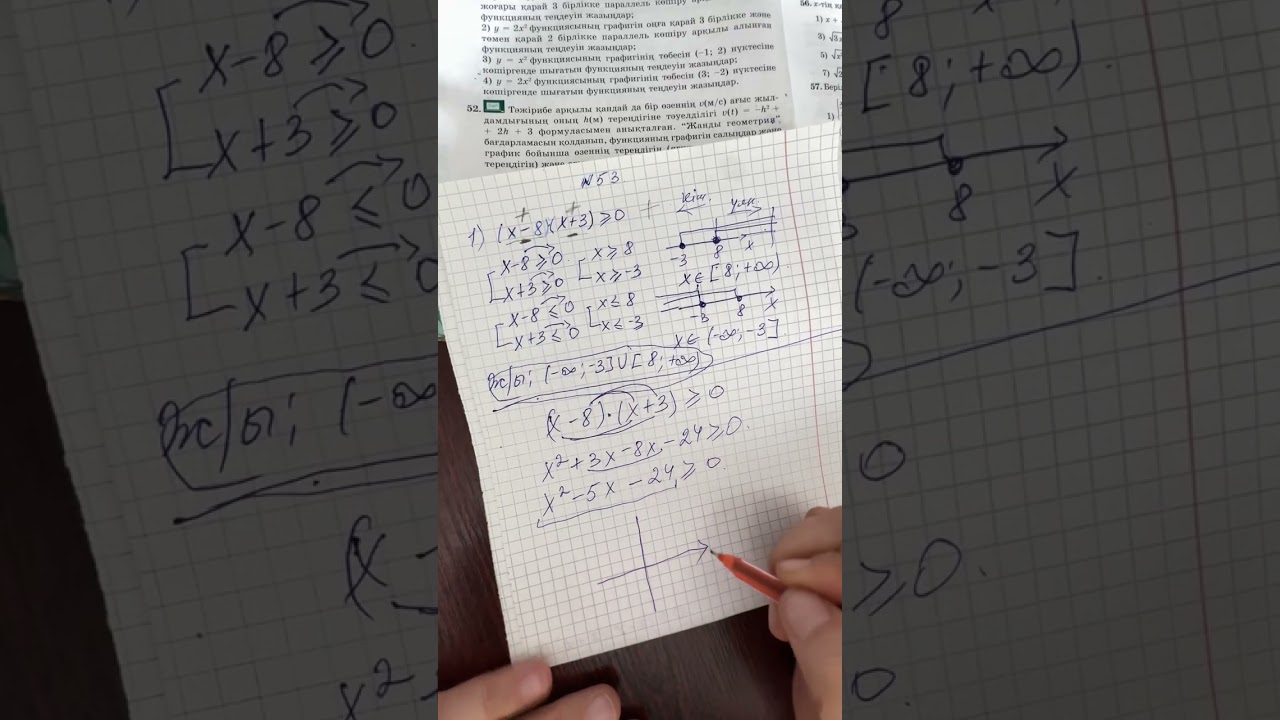 жоғары қарай 3 бірлікке параллель көшіру
функцияның теңдеуін жазыңдар;
2) y = 2x² функциясының графигін оңға қарай 3 бірлікке және
төмен қарай 2 бірлікке параллель көшіру арқылы алынған
функцияның теңдеуін жазыңдар;
3) y = x² функциясының графигінің төбесін (−1; 2) нүктесіне
көшіргенде шығатын функцияның теңдеуін жазыңдар;
4) y = 2x² функциясының графигінің төбесін (3; −2) нүктесіне
көшіргенде шығатын функцияның теңдеуін жазыңдар.
52. Тәжірибе арқылы қандай да бір өзеннің v(м/с) ағыс жыл-
дамдығының оның h(м) тереңдігіне тәуелділігі v(t) = −h² +
+ 2h + 3 формуласымен анықталған. "Жанды геометрия"
бағдарламасын қолданып, функцияның графигін салыңдар және
график бойынша өзеннің тереңдігін
тереңдігін)
56.
1) x +
3)
5)
7)
57. Бері
1)
N53
+ + +
1) (x−8)(x+3) ≥ 0
x−8 ≥ 0
x+3 ≥ 0
x ≥ 8
x ≥ −3
кіш. үлк.
−3 8 x
x ∈ [8; +∞)
x−8 ≤ 0
x+3 ≤ 0
x ≤ 8
x ≤ −3
−3 8 x
x ∈ (−∞; −3].
Ж/ы; (−∞; −3] ∪ [8; +∞)
(x−8)·(x+3) ≥ 0
x² + 3x − 8x − 24 ≥ 0.
x² − 5x − 24 ≥ 0